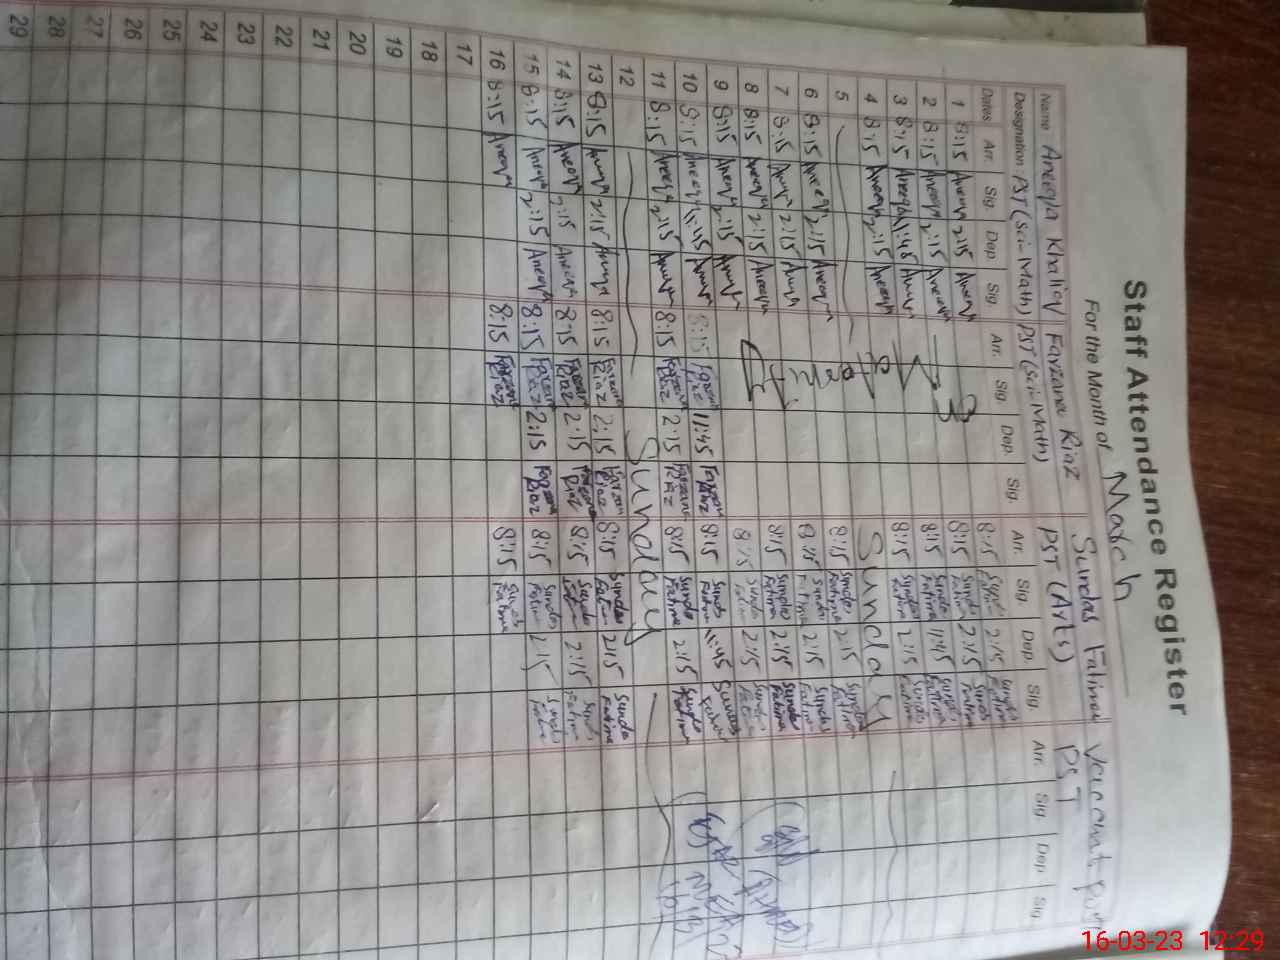 Staff Attendance Register
For the Month of March
Name Aneeqa Khaliq Farzana Riaz Sundas Fatima Vaccant Post
Designation PST (Sci. Math) PST (Sci. Math) PST (Arts) PST
Dates Arr. Sig. Dep. Sig. Arr. Sig. Dep. Sig. Arr. Sig. Dep. Sig. Arr. Sig. Dep. Sig.
1 8:15 Aneeqa 2:15 Aneeqa 8:15 Sundas Fatima 2:15 Sundas Fatima
2 8:15 Aneeqa 2:15 Aneeqa 8:15 Sundas Fatima 2:15 Sundas Fatima
3 8:15 Aneeqa 11:45 Aneeqa 8:15 Sundas Fatima 11:45 Sundas Fatima
4 8:15 Aneeqa 2:15 Aneeqa 8:15 Sundas Fatima 2:15 Sundas Fatima
5 Sunday
6 8:15 Aneeqa 2:15 Aneeqa 8:15 Sundas Fatima 2:15 Sundas Fatima
7 8:15 Aneeqa 2:15 Aneeqa 8:15 Sundas Fatima 2:15 Sundas Fatima
8 8:15 Aneeqa 2:15 Aneeqa 8:15 Sundas Fatima 2:15 Sundas Fatima
9 8:15 Aneeqa 2:15 Aneeqa 8:15 Sundas Fatima 2:15 Sundas Fatima
10 8:15 Aneeqa 11:45 Aneeqa 8:15 Farzana Riaz 11:45 Farzana Riaz 8:15 Sundas Fatima 11:45 Sundas Fatima
11 8:15 Aneeqa 2:15 Aneeqa 8:15 Farzana Riaz 2:15 Farzana Riaz 8:15 Sundas Fatima 2:15 Sundas Fatima
12 Sunday
13 8:15 Aneeqa 2:15 Aneeqa 8:15 Farzana Riaz 2:15 Farzana Riaz 8:15 Sundas Fatima 2:15 Sundas Fatima
14 8:15 Aneeqa 2:15 Aneeqa 8:15 Farzana Riaz 2:15 Farzana Riaz 8:15 Sundas Fatima 2:15 Sundas Fatima
15 8:15 Aneeqa 2:15 Aneeqa 8:15 Farzana Riaz 2:15 Farzana Riaz 8:15 Sundas Fatima 2:15 Sundas Fatima
16 8:15 Aneeqa 8:15 Farzana Riaz 8:15 Sundas Fatima
17
18
19
20
21
22
23
24
25
26
27
28
29
16-03-23 12:29